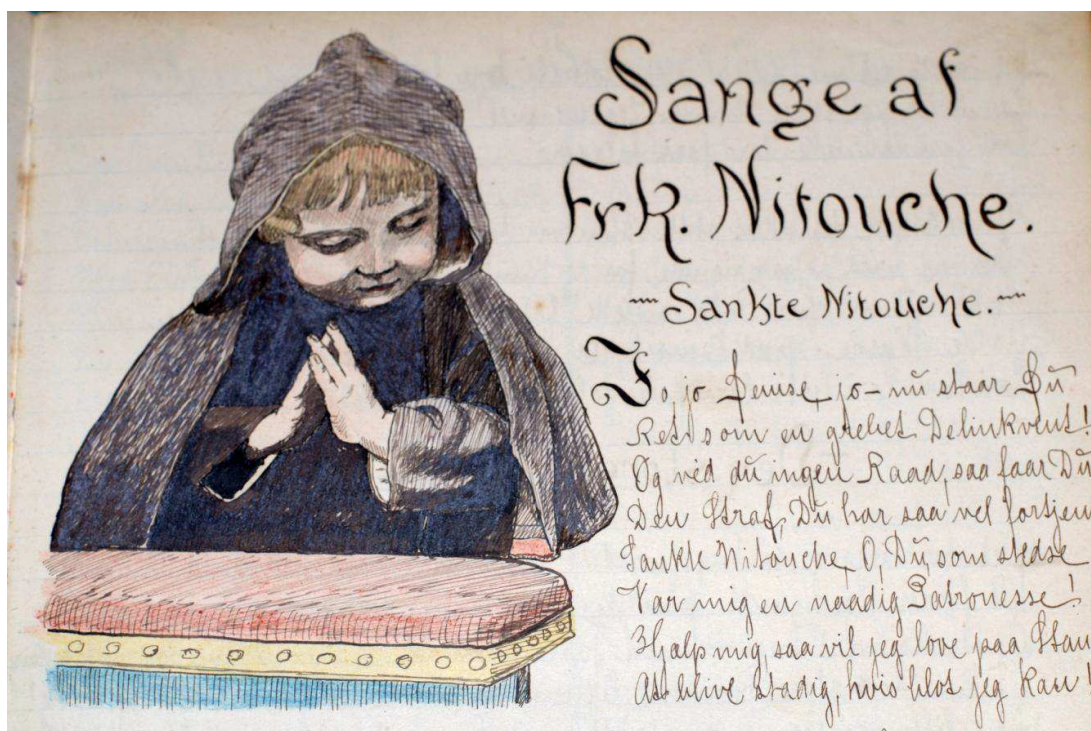 Sange af
Frk. Nitouche.
Sankte Nitouche.
Jo, jo Denise, jo – nu staar Du
Ret som en grebet Delinkvent!
Og véd du ingen Raad, saa faar Du
Den Straf, Du har saa vel fortjen
Sankte Nitouche, O, Du som stedse
Var mig en naadig Patronesse!
Hjælp mig, saa vil jeg love paa Stan
At blive stadig, hvis blot jeg kan!